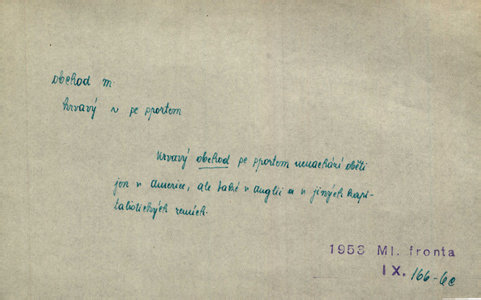 obchod m.
krvavý ~ se sportem
Krvavý obchod se sportem nenachází oběti
jen v Americe, ale také v Anglii a v jiných kapi-
talistických zemích.
1953 Ml. fronta
IX. 166-6c